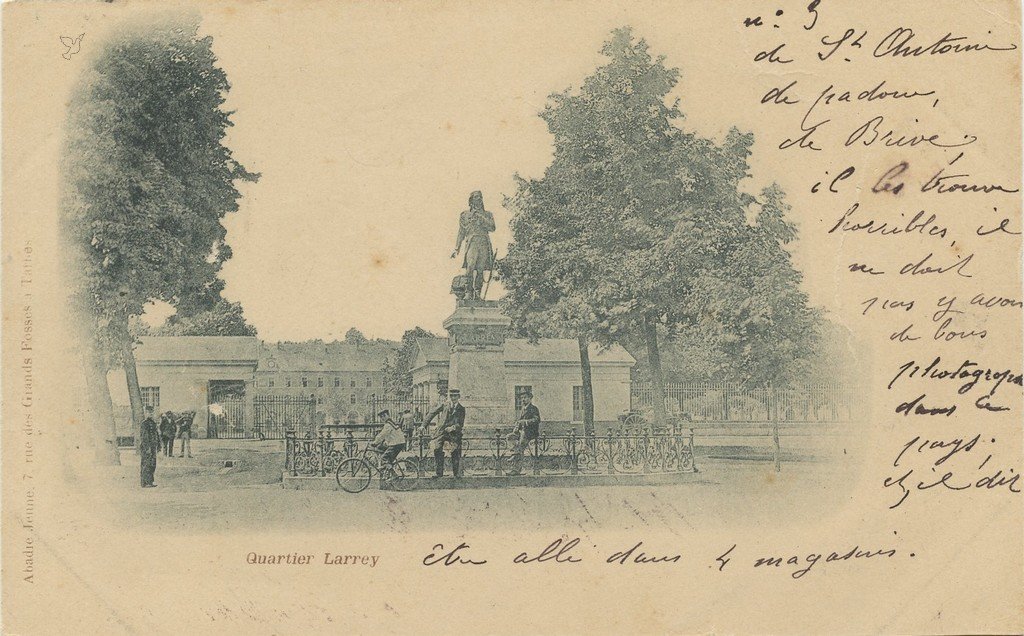 n: 3
de St Antoine
de padoue,
de Brive;
il les trouve
horribles, il
ne doit
pas y avoir
de bons
photograp
dans le
pays;
et, il dit
être allé dans 4 magasins.
Quartier Larrey
Abadie Jeune, 7 rue des Grands Fossés à Tarbes